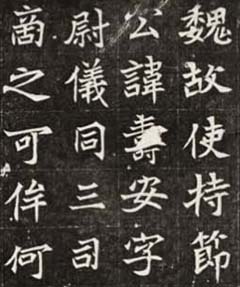 魏故使持節
公諱壽安字
尉儀同三司
商之可侔何